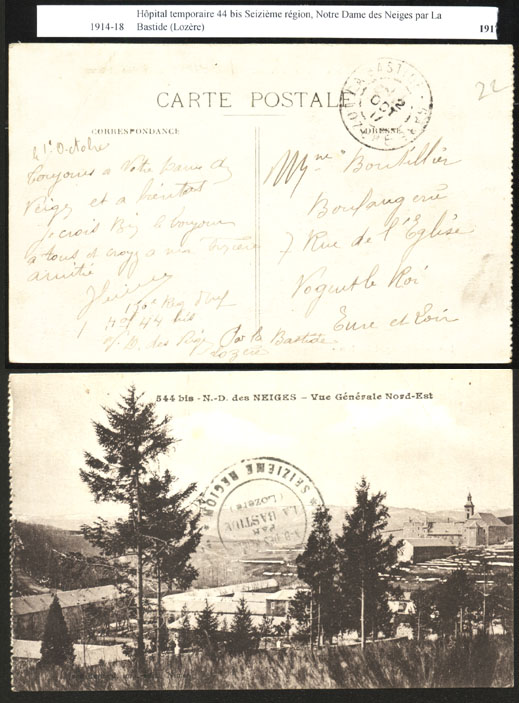 Hôpital temporaire 44 bis Seizième région, Notre Dame des Neiges par La
1914-18 Bastide (Lozère) 191
CARTE POSTALE
CORRESPONDANCE
ADRESSE
LA BASTIDE
OCT
22
Octobre
Toujours a Notre Dame des
Neiges et a bientot
Je crois bonjour
a tous
amitié
Mme Boutillier
Boulangerie
7 Rue de l'Eglise
Nogent le Roi
Eure et Loir
44 bis
N. D. des Neiges Par la Bastide
Lozère
544 bis - N.-D. des NEIGES - Vue Générale Nord-Est
SEIZIÈME RÉGION
PAR
LA BASTIDE
(Lozère)